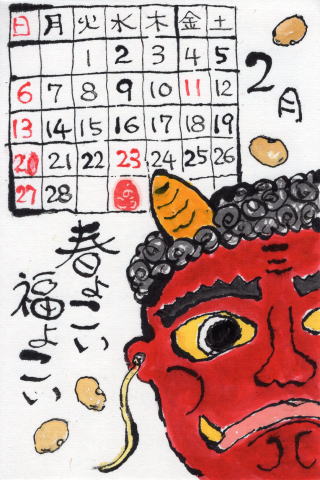 2月
日 月 火 水 木 金 土
1 2 3 4 5
6 7 8 9 10 11 12
13 14 15 16 17 18 19
20 21 22 23 24 25 26
27 28
春よこい
福よこい